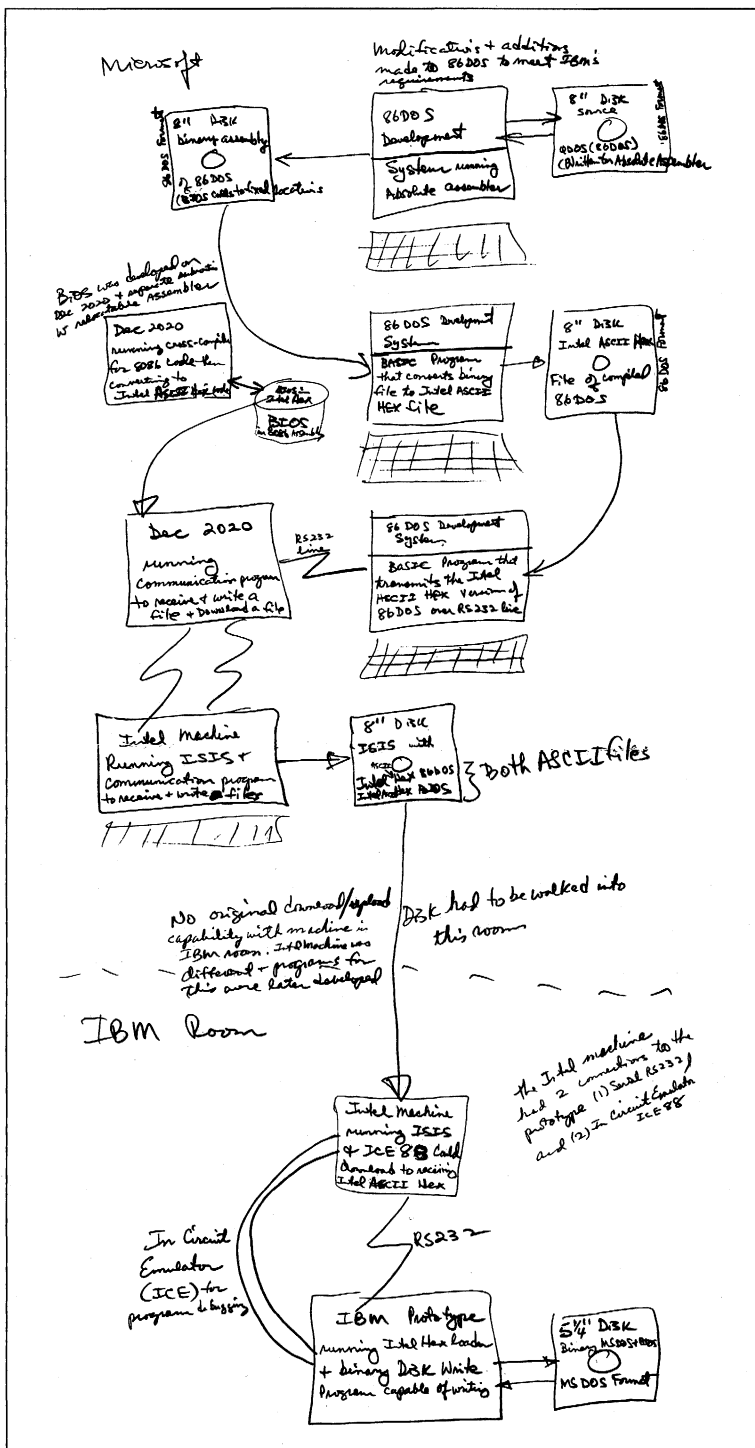 Microsoft
Modifications + additions
made to 86DOS to meet IBM's
requirements
86 DOS Format
8" Disk
binary assembly
of 86DOS
(BIOS calls to fixed locations
86DOS
Development
System running
Absolute assembler
8" Disk
Source
QDOS (86DOS)
(Written for Absolute Assembler
86DOS Format
BIOS was developed on
Dec 2020 + separate
w relocatable Assembler
Dec 2020
running cross-compiler
for 8086 code then
converting to
Intel ASCII Hex code
BIOS in
Intel Hex
BIOS
in 8086 Assembly
86DOS Development
System
BASIC Program
that converts binary
file to Intel ASCII
HEX file
8" Disk
Intel ASCII Hex
File of compiled
86DOS
86 DOS Format
Dec 2020
running
communication program
to receive + write a
file + Download a file
RS232
line
86 DOS Development
System
BASIC Program that
transmits the Intel
ASCII HEX Version of
86DOS over RS232 line
Intel Machine
Running ISIS +
communication program
to receive + write files
8" Disk
ISIS with
ASCII
Intel Hex 86DOS
Intel Hex BIOS
Both ASCII files
No original download/upload
capability with machine in
IBM room. Intel Machine was
different + programs for
this were later developed
Disk had to be walked into
this room
IBM Room
the Intel machine
had 2 connections to the
prototype (1) Serial RS232,
and (2) In Circuit Emulator
ICE 88
Intel Machine
running ISIS
+ ICE 88 Could
download to receiving
Intel ASCII Hex
In Circuit
Emulator
(ICE) for
program debugging
RS232
IBM Prototype
running Intel Hex loader
+ binary Disk Write
Program capable of writing
5¼" Disk
Binary MSDOS+BIOS
MSDOS Format